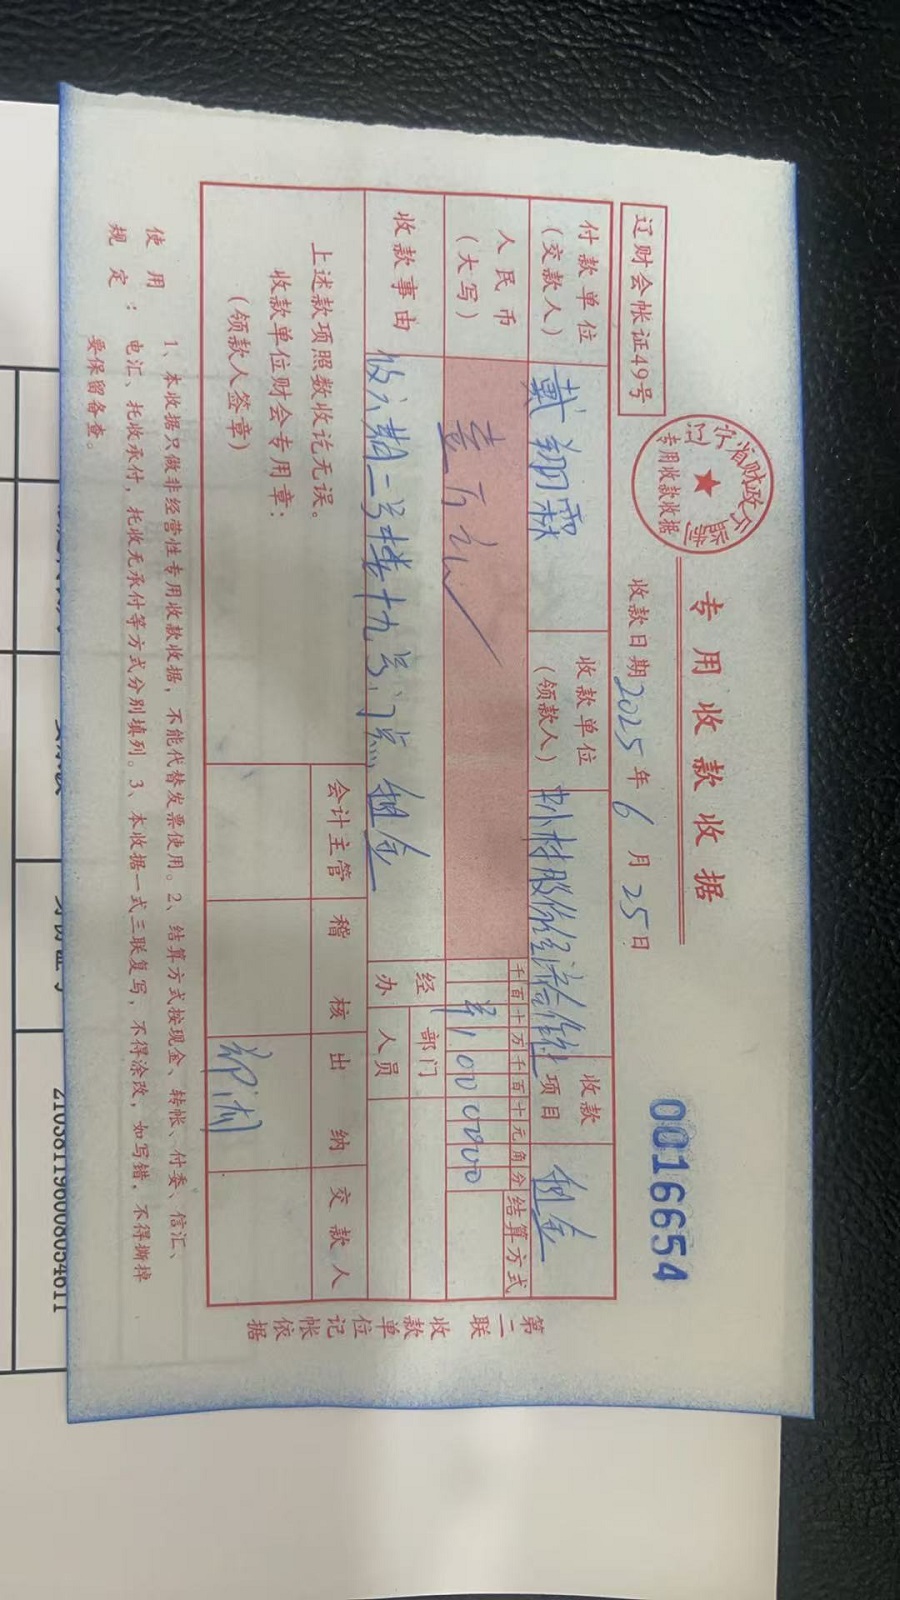 辽财会帐证49号
辽宁省财政
专用收款收据
专用收款收据
0016654
收款日期2025年6月25日
付款单位
(交款人)
戴翔霖
收款单位
(领款人)
股份经济合作社
收款
项目
租金
人民币
(大写)
千百十万千百十元角分
结算方式
收款事由
二号楼十九号门点租金
经办
部门
人员
上述款项照数收讫无误。
收款单位财会专用章:
(领款人签章)
会计主管
稽核
出纳
交款人
第二联 收款单位记帐依据
使用规定:
1、本收据只做非经营性专用收款收据,不能代替发票使用。2、结算方式按现金、转帐、付委、信汇、
电汇、托收承付,托收无承付等方式分别填列。3、本收据一式三联复写,不得涂改,如写错,不得撕掉
要保留备查。